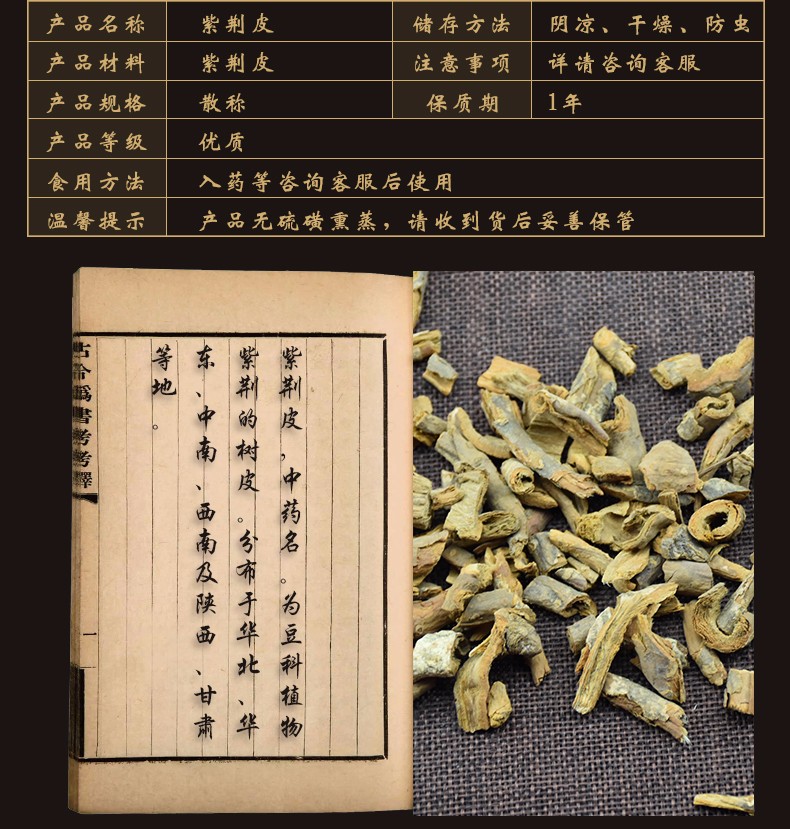 产品名称 紫荆皮 储存方法 阴凉、干燥、防虫
产品材料 紫荆皮 注意事项 详请咨询客服
产品规格 散称 保质期 1年
产品等级 优质
食用方法 入药等咨询客服后使用
温馨提示 产品无硫磺熏蒸，请收到货后妥善保管
紫荆皮，中药名。为豆科植物
紫荆的树皮。分布于华北、华
东、中南、西南及陕西、甘肃
等地。
書考考釋
一